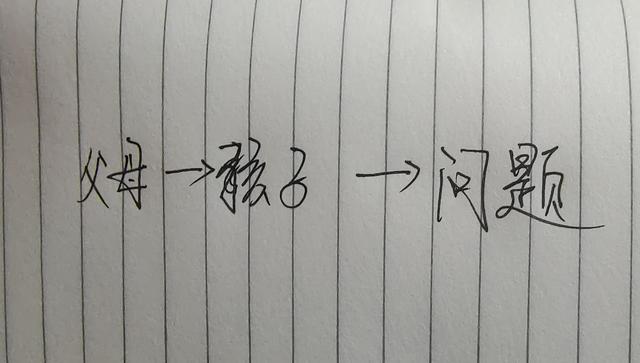 父母→孩子→问题